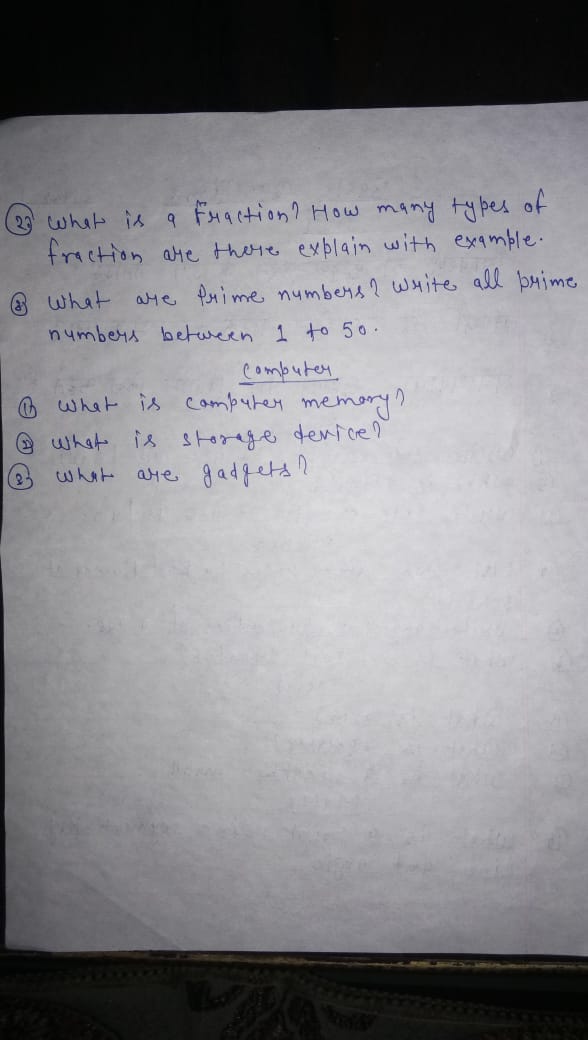 (2) What is a Fraction? How many types of
fraction are there explain with example.
(3) What are Prime numbers? Write all prime
numbers between 1 to 50.
Computer
(1) What is computer memory?
(2) What is storage device?
(3) What are gadgets?